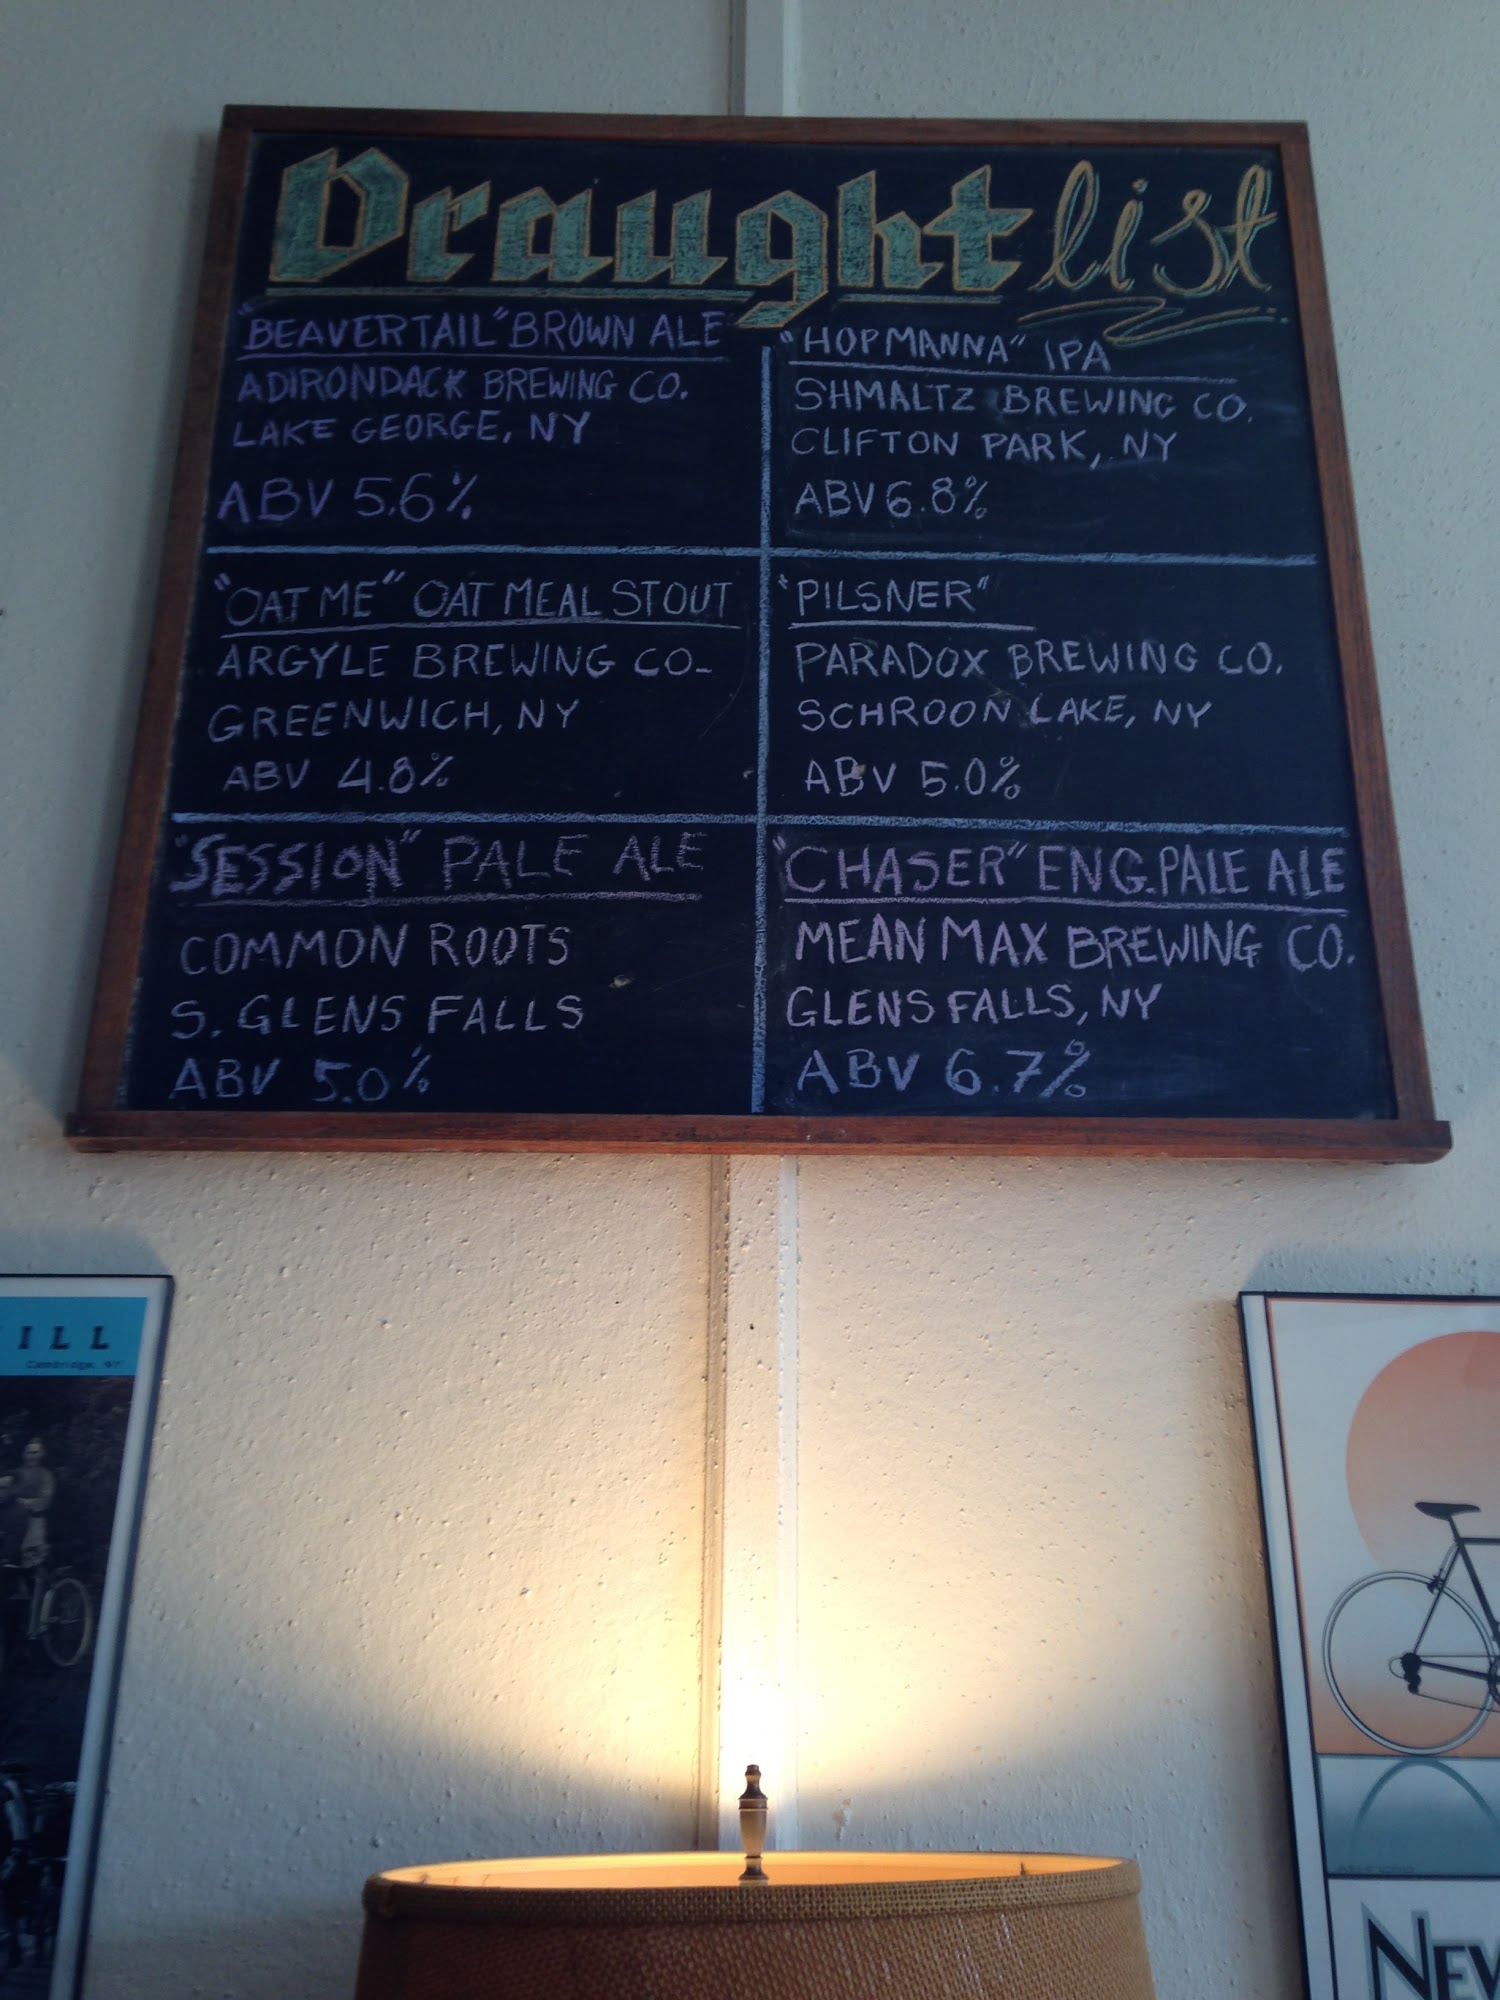 Draught list
"BEAVERTAIL" BROWN ALE
ADIRONDACK BREWING CO.
LAKE GEORGE, NY
ABV 5.6%
"HOPMANNA" IPA
SHMALTZ BREWING CO.
CLIFTON PARK, NY
ABV 6.8%
"OAT ME" OATMEAL STOUT
ARGYLE BREWING CO.
GREENWICH, NY
ABV 4.8%
"PILSNER"
PARADOX BREWING CO.
SCHROON LAKE, NY
ABV 5.0%
"SESSION" PALE ALE
COMMON ROOTS
S. GLENS FALLS
ABV 5.0%
"CHASER" ENG. PALE ALE
MEAN MAX BREWING CO.
GLENS FALLS, NY
ABV 6.7%
ILL
Cambridge, NY
NEW